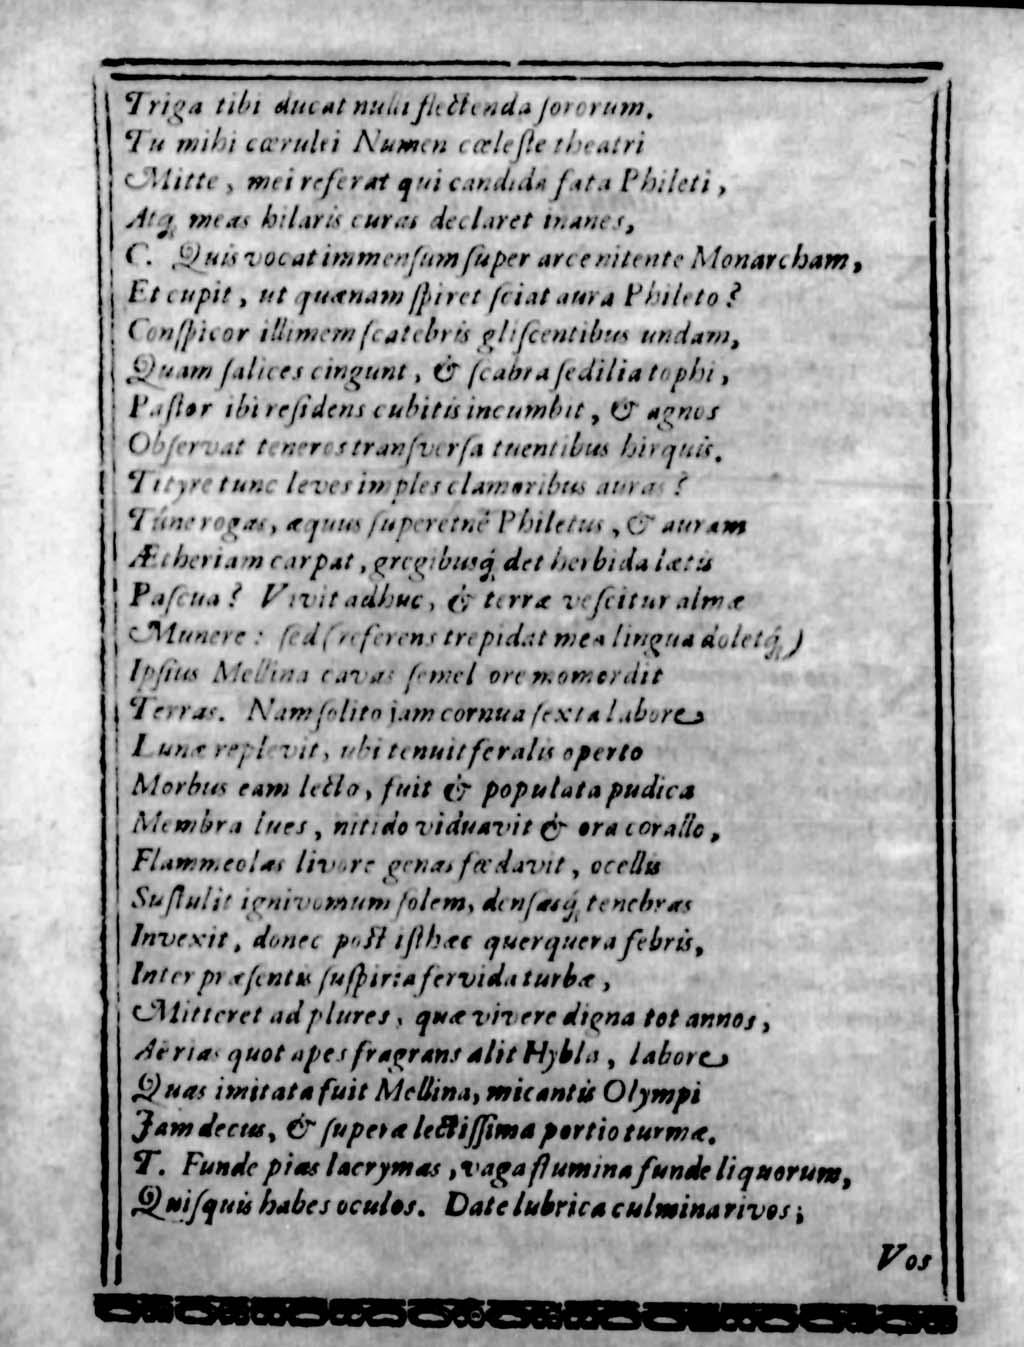 Triga tibi ducat nulli flectenda ſororum.
Tu mihi cœrulei Numen cœleſte theatri
Mitte, mei referat qui candida fata Phileti,
Atq́ meas hilaris curas declaret inanes,
C. Quis vocat immenſum ſuper arce nitente Monarcham,
Et cupit, ut quænam ſpiret ſciat aura Phileto?
Conſpicor illimem ſcatebris gliſcentibus undam,
Quam ſalices cingunt, & ſcabra ſedilia tophi,
Paſtor ibi reſidens cubitis incumbit, & agnos
Obſervat teneros tranſverſa tuentibus hirquis.
Tityre tunc leves imples clamoribus auras?
Túne rogas, æquus ſuperetné Philetus, & auram
Ætheriam carpat, gregibusq́ det herbida lætis
Paſcua? Vivit adhuc, & terræ veſcitur almæ
Munere: ſed (referens trepidat mea lingua doletq́)
Ipſius Mellina cavas ſemel ore momordit
Terras. Nam ſolito jam cornua ſexta labore
Lunæ replevit, ubi tenuit feralis operto
Morbus eam lecto, fuit & populata pudica
Membra lues, nitido viduavit & ora corallo,
Flammeolas livore genas fœdavit, ocellis
Suſtulit ignivomum ſolem, denſasq́ tenebras
Invexit, donec poſt iſthæc querquera febris,
Inter præſentis ſuſpiria fervida turbæ,
Mitteret ad plures, quæ vivere digna tot annos,
Aërias quot apes fragrans alit Hybla, labore
Quas imitata fuit Mellina, micantis Olympi
Jam decus, & ſuperæ lectiſſima portio turmæ.
T. Funde pias lacrymas, vaga flumina funde liquorum,
Quiſquis habes oculos. Date lubrica culmina rivos;
Vos